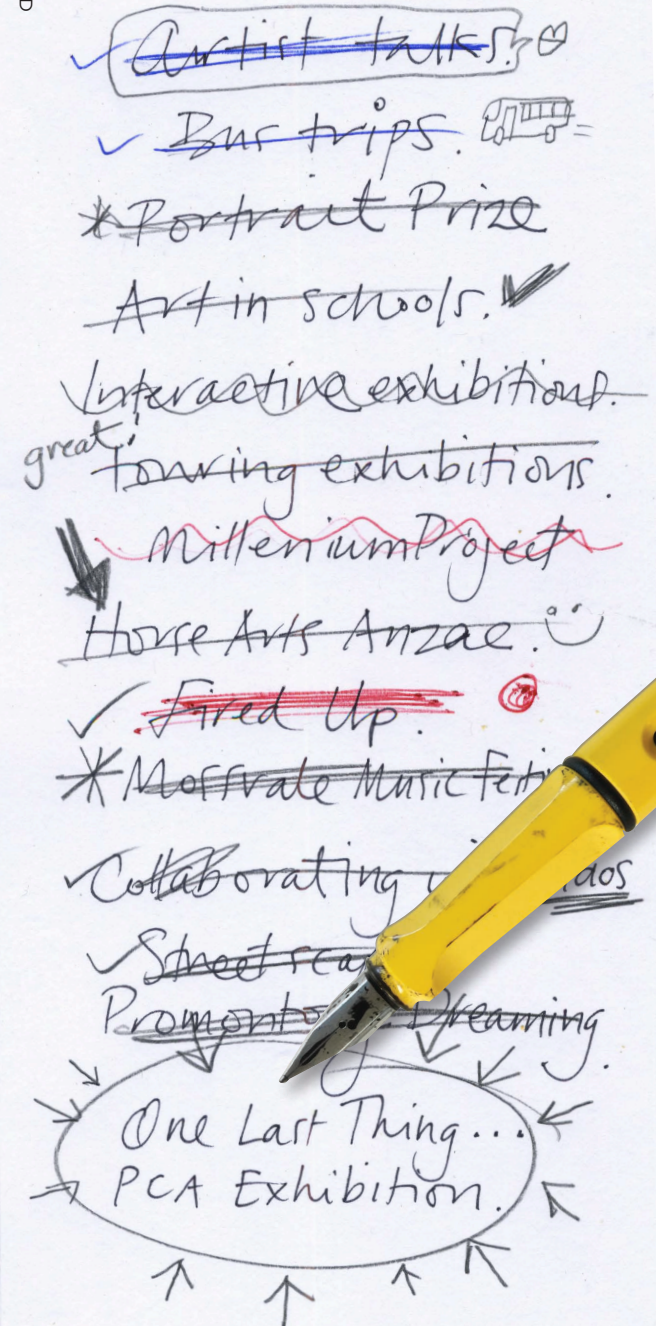 D
Artist talks.
Bus trips.
Portrait Prize
Art in schools.
Interactive exhibitions.
great!
touring exhibitions.
Millenium Project
Horse Arts Anzac.
Fired Up.
Morrvale Music
Collaborating
Street
Dreaming.
One Last Thing...
PCA Exhibition.